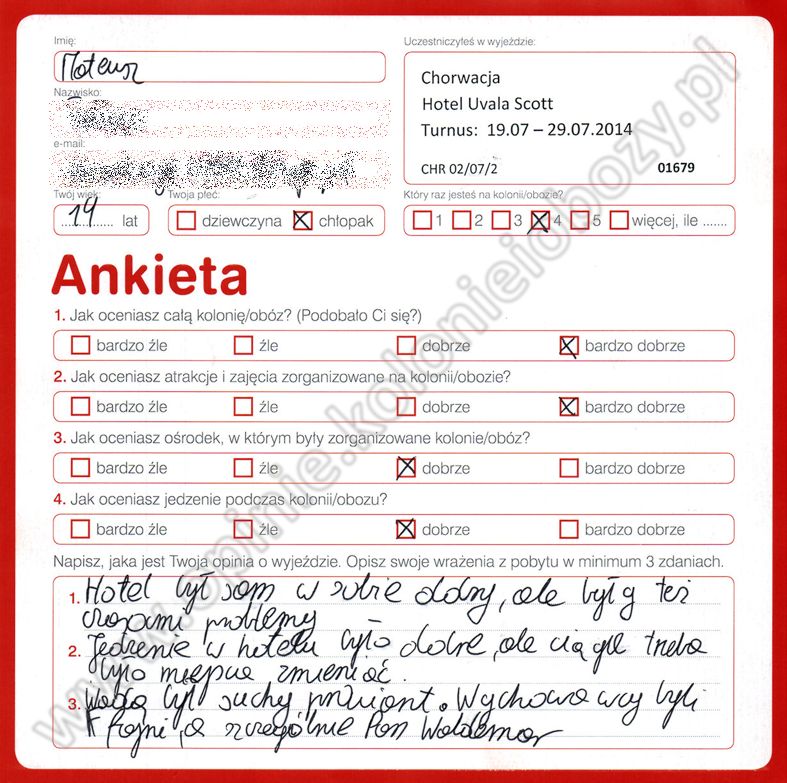 Imię:
Uczestniczyłeś w wyjeździe:
Mateusz
Chorwacja
Nazwisko:
Hotel Uvala Scott
Turnus: 19.07 – 29.07.2014
e-mail:
CHR 02/07/2 01679
Twój wiek: Twoja płeć: Który raz jesteś na kolonii/obozie?
14 lat dziewczyna chłopak 1 2 3 4 5 więcej, ile .......
Ankieta
1. Jak oceniasz całą kolonię/obóz? (Podobało Ci się?)
bardzo źle źle dobrze bardzo dobrze
2. Jak oceniasz atrakcje i zajęcia zorganizowane na kolonii/obozie?
bardzo źle źle dobrze bardzo dobrze
3. Jak oceniasz ośrodek, w którym były zorganizowane kolonie/obóz?
bardzo źle źle dobrze bardzo dobrze
4. Jak oceniasz jedzenie podczas kolonii/obozu?
bardzo źle źle dobrze bardzo dobrze
Napisz, jaka jest Twoja opinia o wyjeździe. Opisz swoje wrażenia z pobytu w minimum 3 zdaniach.
1. Hotel był sam w sobie dobry, ale były też
czasami problemy
2. Jedzenie w hotelu było dobre, ale ciągle trzeba
było miejsca zmieniać.
3. był suchy prowiant. Wychowawcy byli
fajni, a szczególnie Pan Waldemar
www.opinie.kolonieiobozy.pl